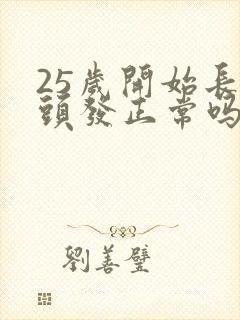 25歲開始長
頭發正常嗎
劉善璧